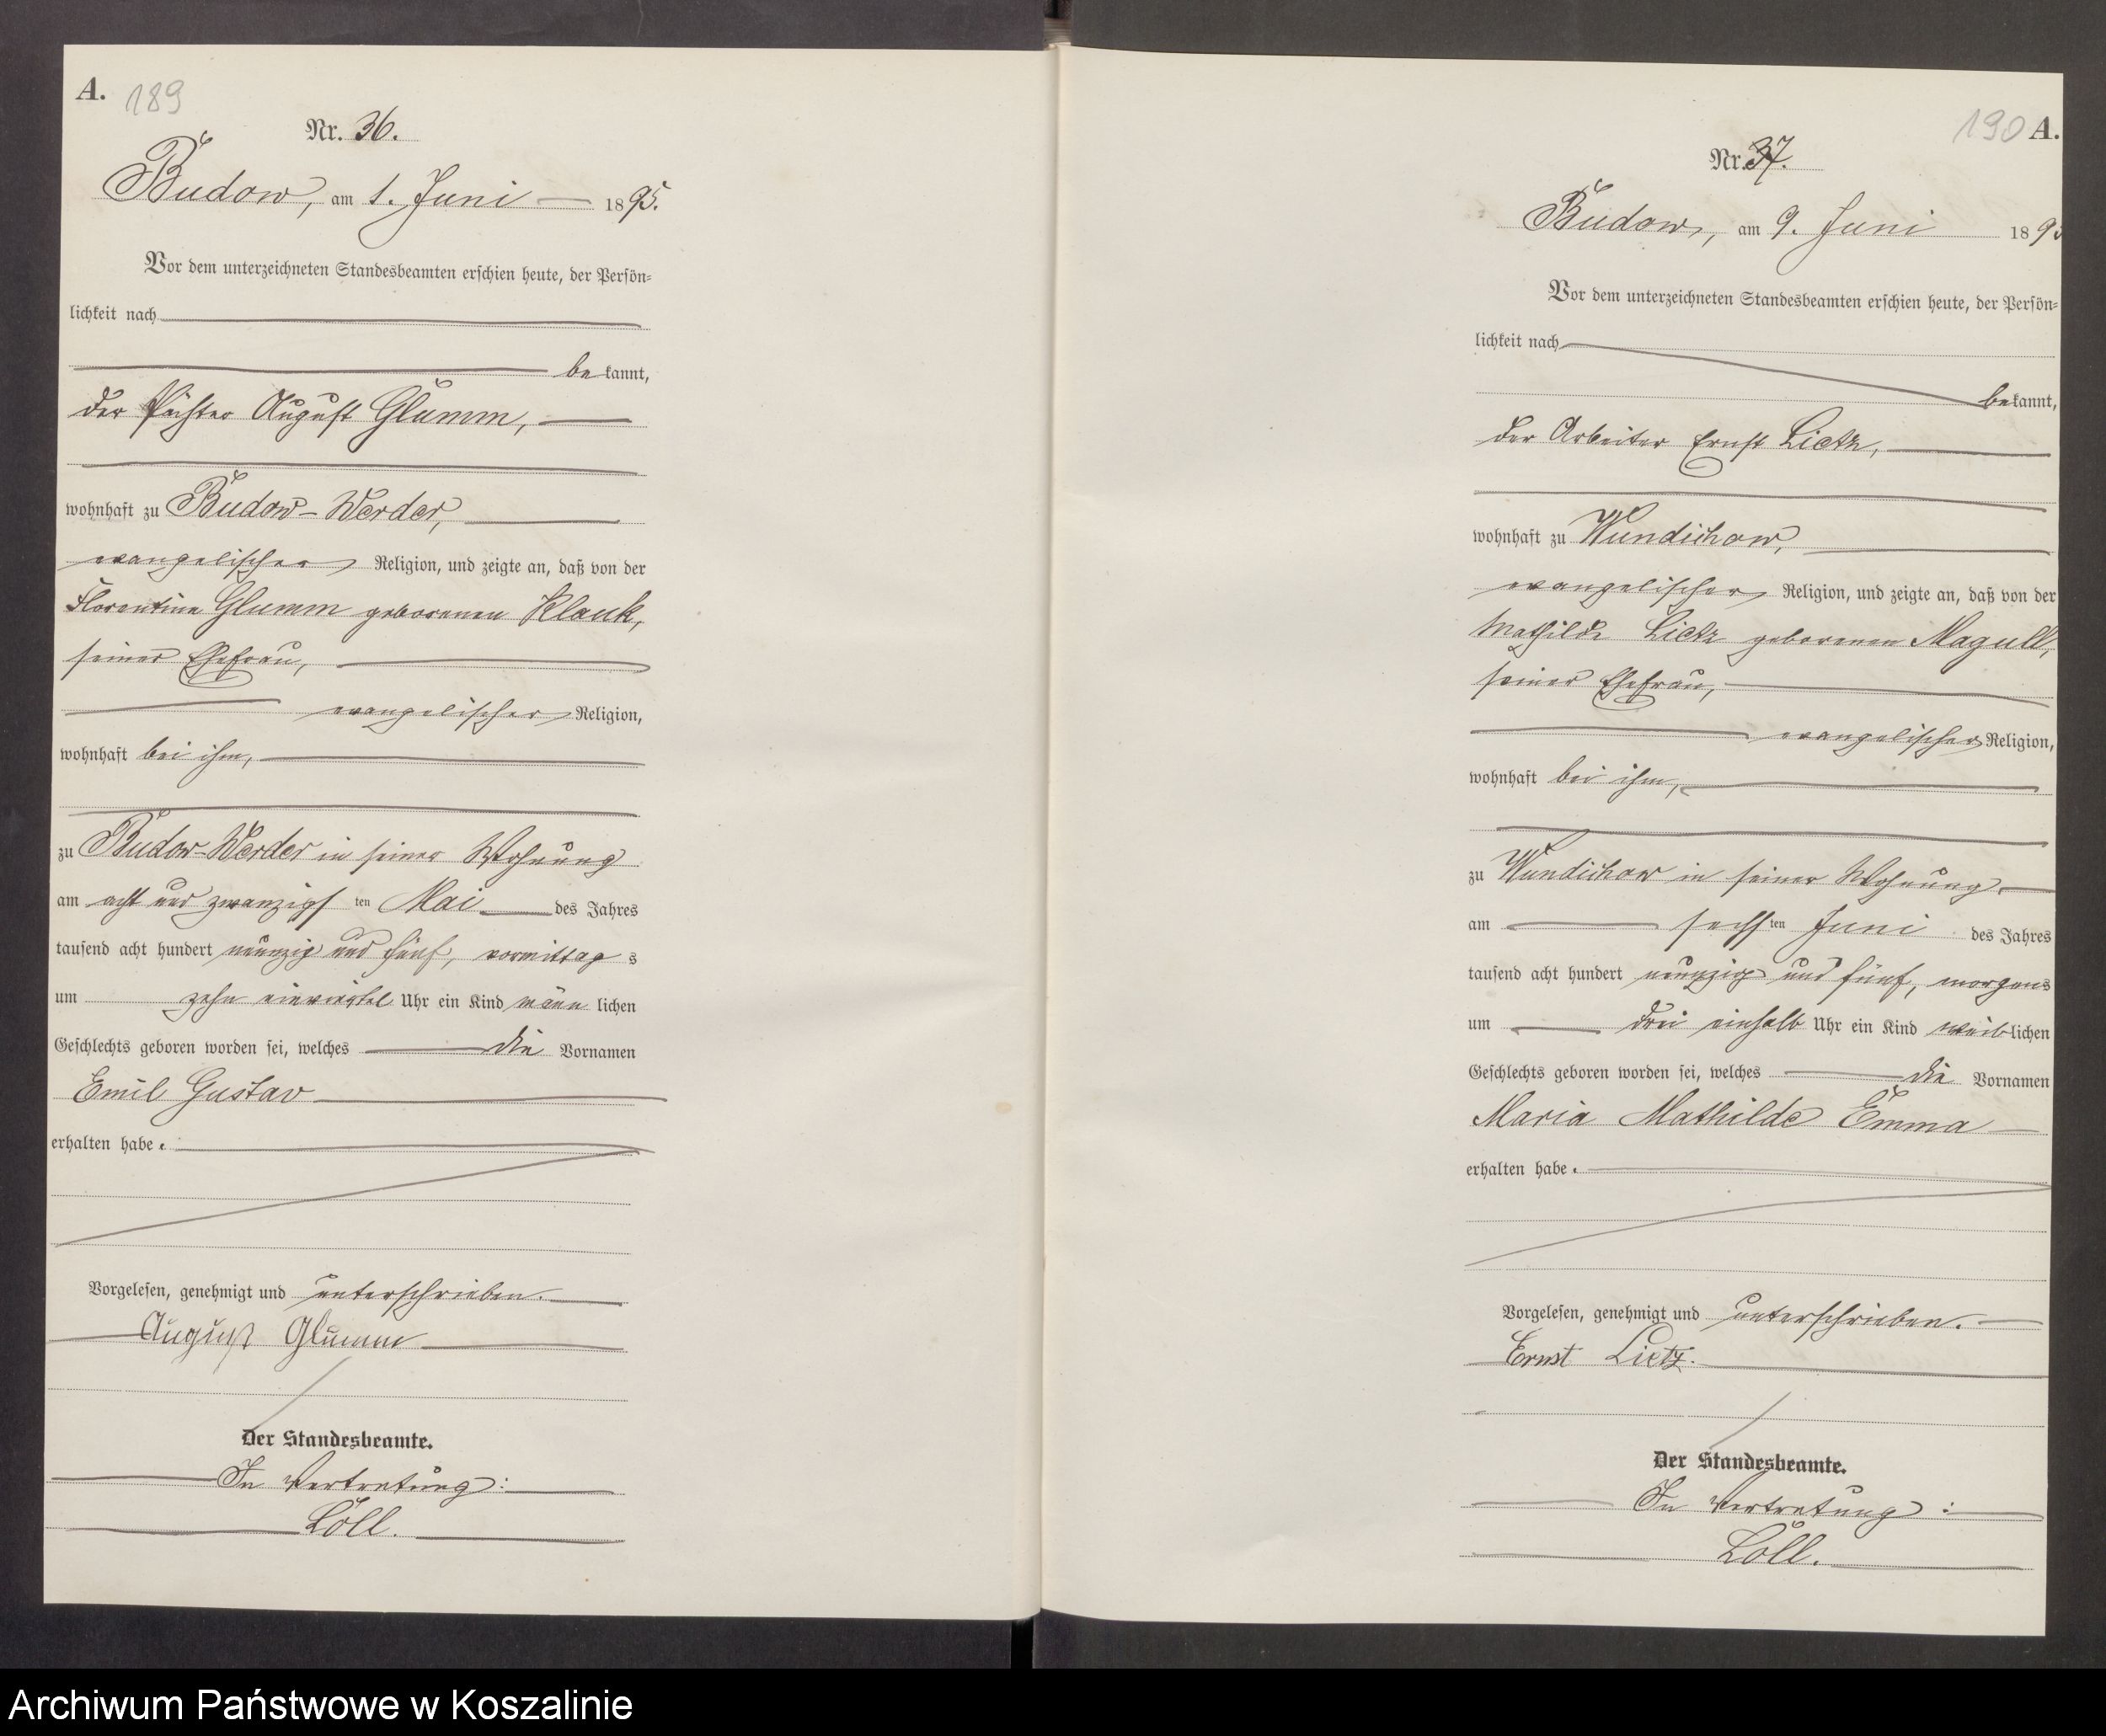 A. 189
Nr. 36.
Budow, am 1. Juni 1895.
Vor dem unterzeichneten Standesbeamten erschien heute, der Persön-
lichkeit nach
bekannt,
der Pächter August Glumm,
wohnhaft zu Budow-Werder,
evangelischer Religion, und zeigte an, daß von der
Florentine Glumm geborenen Klauk,
seiner Ehefrau,
evangelischer Religion,
wohnhaft bei ihm,
zu Budow-Werder in seiner Wohnung
am acht und zwanzigsten Mai des Jahres
tausend acht hundert neunzig und fünf, vormittags
um zehn einviertel Uhr ein Kind männlichen
Geschlechts geboren worden sei, welches die Vornamen
Emil Gustav
erhalten habe.
Vorgelesen, genehmigt und unterschrieben.
August Glumm
Der Standesbeamte.
In Vertretung:
Löll.
190 A.
Nr. 37.
Budow, am 9. Juni 189
Vor dem unterzeichneten Standesbeamten erschien heute, der Persön-
lichkeit nach
bekannt,
der Arbeiter Ernst Lietz,
wohnhaft zu Wundichow,
evangelischer Religion, und zeigte an, daß von der
Mathilde Lietz geborenen Magull,
seiner Ehefrau,
evangelischer Religion,
wohnhaft bei ihm,
zu Wundichow in seiner Wohnung
am sechsten Juni des Jahres
tausend acht hundert neunzig und fünf, morgens
um drei einhalb Uhr ein Kind weiblichen
Geschlechts geboren worden sei, welches die Vornamen
Maria Mathilde Emma
erhalten habe.
Vorgelesen, genehmigt und unterschrieben.
Ernst Lietz.
Der Standesbeamte.
In Vertretung:
Löll.
Archiwum Państwowe w Koszalinie